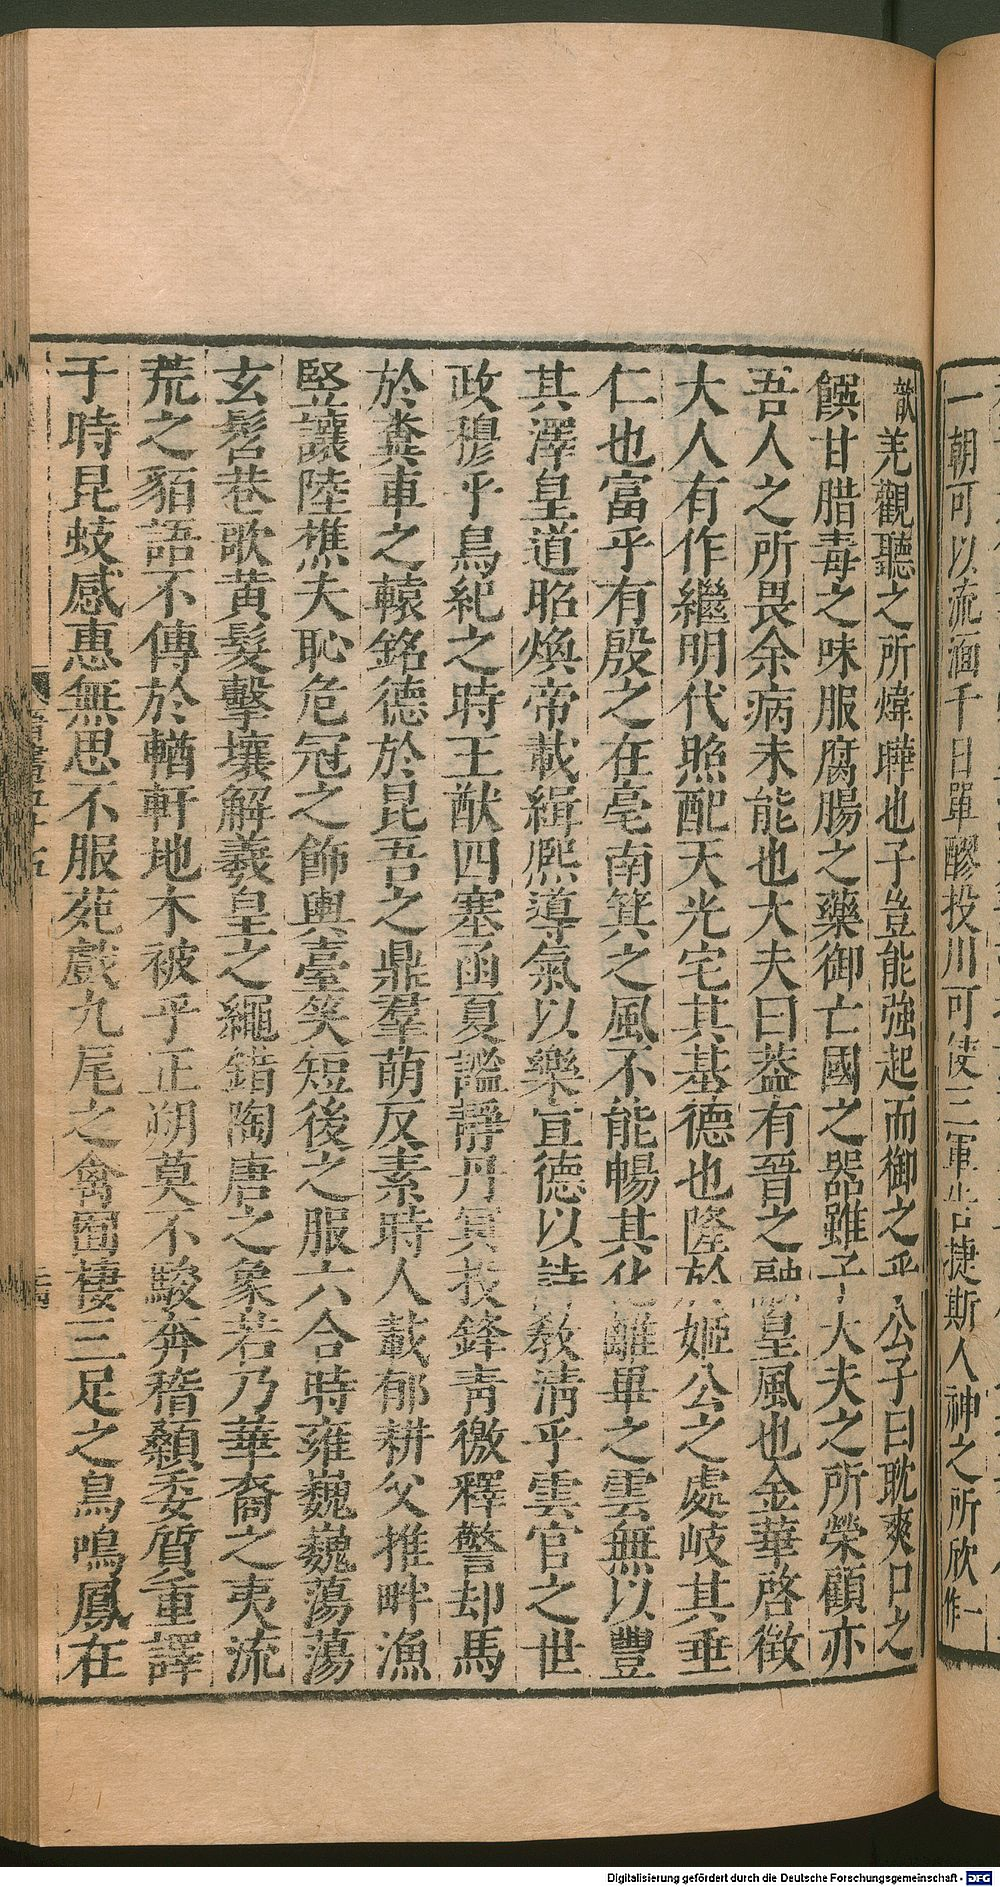 一朝可以流湎千日單醪投川可使三軍告捷斯人神之所欣作一
歆羌觀聽之所煒曄也子豈能強起而御之乎公子曰耽爽口之
饌甘腊毒之味服腐腸之藥御亡國之器雖子大夫之所榮顧亦
吾人之所畏余病未能也大夫曰蓋有晉之融皇風也金華啓徵
大人有作繼明代照配天光宅其基德也隆於姬公之處岐其垂
仁也富乎有殷之在亳南箕之風不能暢其化離畢之雲無以豐
其澤皇道昭煥帝載緝熈導氣以樂宣德以詩敎清乎雲官之世
政穆乎鳥紀之時王猷四塞函夏謐靜丹冥投鋒靑徼釋警却馬
於糞車之轅銘德於昆吾之鼎羣萌反素時人載郁耕父推畔漁
竪讓陸樵夫恥危冠之飾輿臺笑短後之服六合時雍巍巍蕩蕩
玄髫巷歌黃髮擊壤解羲皇之繩錯陶唐之象若乃華裔之夷流
荒之貊語不傳於輶軒地不被乎正朔莫不駿奔稽顙委質重譯
于時昆蚑感惠無思不服苑戲九尾之禽囿棲三足之鳥鳴鳳在
晉書五十五
Digitalisierung gefördert durch die Deutsche Forschungsgemeinschaft - DFG